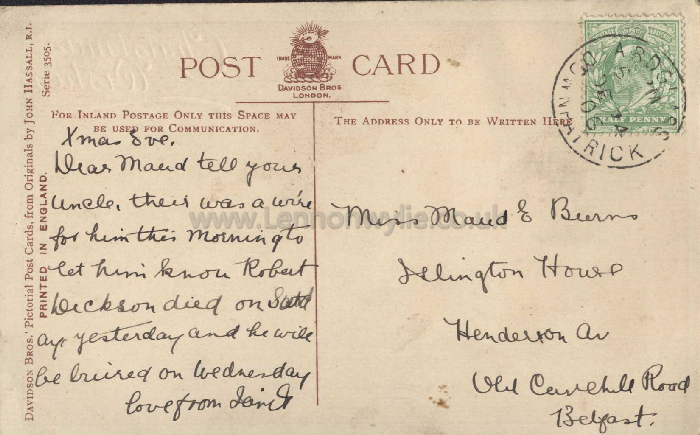 POST CARD
TRADE MARK
DAVIDSON BROS
LONDON.
FOR INLAND POSTAGE ONLY THIS SPACE MAY
BE USED FOR COMMUNICATION.
THE ADDRESS ONLY TO BE WRITTEN HERE
Xmas Eve.
Dear Maud tell your
uncle, their was a wire
for him this Morning to
let him know Robert
Dickson died on Satd
ay yesterday and he will
be buired on Wednesday
love from
Miss Maud E Burns
Islington House
Henderson Av
Old Cavehill Road
Belfast.
DAVIDSON BROS.' Pictorial Post Cards, from Originals by JOHN HASSALL, R.I.
Serie 3505.
PRINTED IN ENGLAND.
HALF PENNY
www.Lennonwylie.co.uk